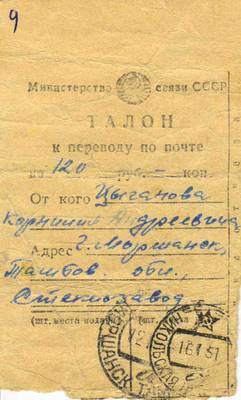 9
Министерство связи СССР
ТАЛОН
к переводу по почте
на 120 руб. — коп.
От кого Цыганова
Корнилия Андреевича
Адрес г. Моршанск,
Тамбов. обл.,
Стеклозавод
(шт. места подачи)
МОРШАНСК
16 7 51